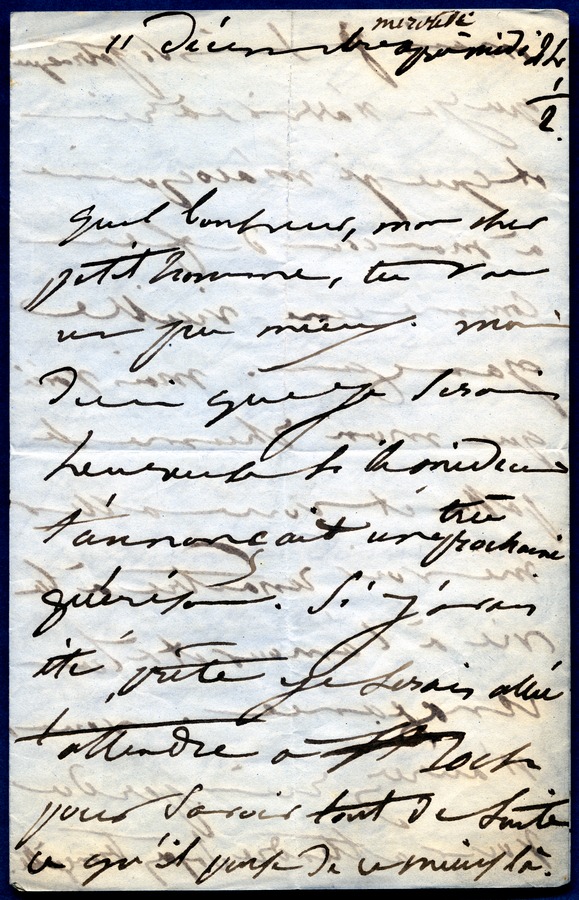 11 décembre après midi 2h
1/2.
quel bonheur, mon cher
petit homme, tu vas
un peu mieux. mon
dieu que je serais
heureuse si le médecin
t'annonçait une très prochaine
guérison. Si j'avais
été prête je serais allée
t'attendre à St Roch
pour savoir tout de suite
ce qu'il pense de ce mieux là.